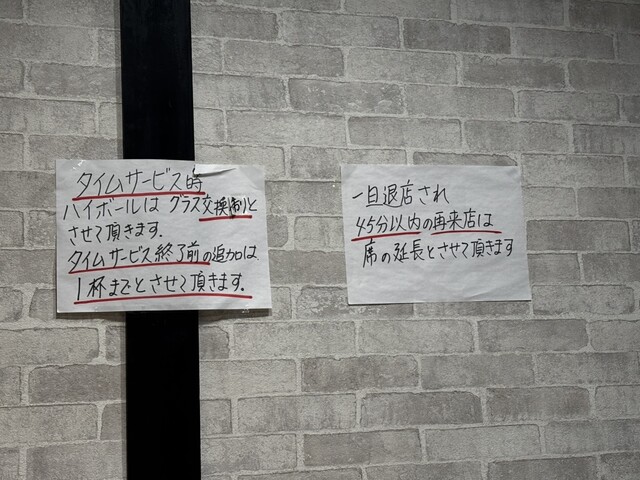 タイムサービス時
ハイボールは グラス交換制と
させて頂きます.
タイムサービス終了前の追加は
1杯までとさせて頂きます.
一旦退店され
45分以内の再来店は
席の延長とさせて頂きます